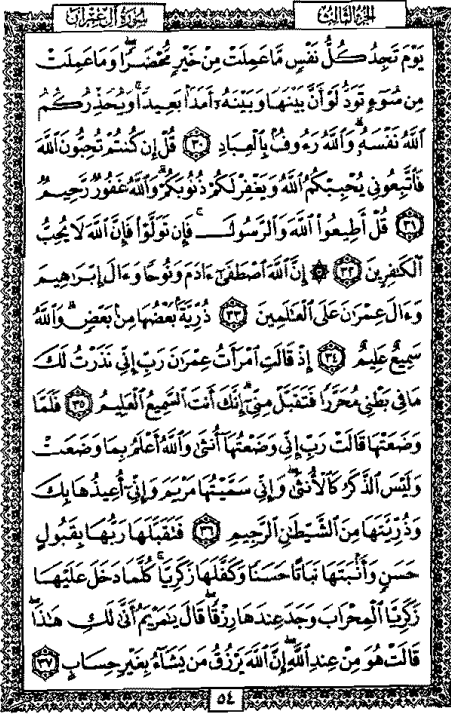 الجزء الثالث
سورة آل عمران
يَوْمَ تَجِدُ كُلُّ نَفْسٍ مَّا عَمِلَتْ مِنْ خَيْرٍ مُّحْضَرًا وَمَا عَمِلَتْ
مِن سُوٓءٍ تَوَدُّ لَوْ أَنَّ بَيْنَهَا وَبَيْنَهُۥٓ أَمَدَۢا بَعِيدًا ۗ وَيُحَذِّرُكُمُ
ٱللَّهُ نَفْسَهُۥ ۗ وَٱللَّهُ رَءُوفُۢ بِٱلْعِبَادِ ٣٠ قُلْ إِن كُنتُمْ تُحِبُّونَ ٱللَّهَ
فَٱتَّبِعُونِى يُحْبِبْكُمُ ٱللَّهُ وَيَغْفِرْ لَكُمْ ذُنُوبَكُمْ ۗ وَٱللَّهُ غَفُورٌ رَّحِيمٌ
٣١ قُلْ أَطِيعُوا۟ ٱللَّهَ وَٱلرَّسُولَ ۖ فَإِن تَوَلَّوْا۟ فَإِنَّ ٱللَّهَ لَا يُحِبُّ
ٱلْكَٰفِرِينَ ٣٢ ۞ إِنَّ ٱللَّهَ ٱصْطَفَىٰٓ ءَادَمَ وَنُوحًا وَءَالَ إِبْرَٰهِيمَ
وَءَالَ عِمْرَٰنَ عَلَى ٱلْعَٰلَمِينَ ٣٣ ذُرِّيَّةَۢ بَعْضُهَا مِنۢ بَعْضٍ ۗ وَٱللَّهُ
سَمِيعٌ عَلِيمٌ ٣٤ إِذْ قَالَتِ ٱمْرَأَتُ عِمْرَٰنَ رَبِّ إِنِّى نَذَرْتُ لَكَ
مَا فِى بَطْنِى مُحَرَّرًا فَتَقَبَّلْ مِنِّىٓ ۖ إِنَّكَ أَنتَ ٱلسَّمِيعُ ٱلْعَلِيمُ ٣٥ فَلَمَّا
وَضَعَتْهَا قَالَتْ رَبِّ إِنِّى وَضَعْتُهَآ أُنثَىٰ وَٱللَّهُ أَعْلَمُ بِمَا وَضَعَتْ
وَلَيْسَ ٱلذَّكَرُ كَٱلْأُنثَىٰ ۖ وَإِنِّى سَمَّيْتُهَا مَرْيَمَ وَإِنِّىٓ أُعِيذُهَا بِكَ
وَذُرِّيَّتَهَا مِنَ ٱلشَّيْطَٰنِ ٱلرَّجِيمِ ٣٦ فَتَقَبَّلَهَا رَبُّهَا بِقَبُولٍ
حَسَنٍ وَأَنۢبَتَهَا نَبَاتًا حَسَنًا وَكَفَّلَهَا زَكَرِيَّا ۖ كُلَّمَا دَخَلَ عَلَيْهَا
زَكَرِيَّا ٱلْمِحْرَابَ وَجَدَ عِندَهَا رِزْقًا ۖ قَالَ يَٰمَرْيَمُ أَنَّىٰ لَكِ هَٰذَا ۖ
قَالَتْ هُوَ مِنْ عِندِ ٱللَّهِ ۖ إِنَّ ٱللَّهَ يَرْزُقُ مَن يَشَآءُ بِغَيْرِ حِسَابٍ ٣٧
٥٤